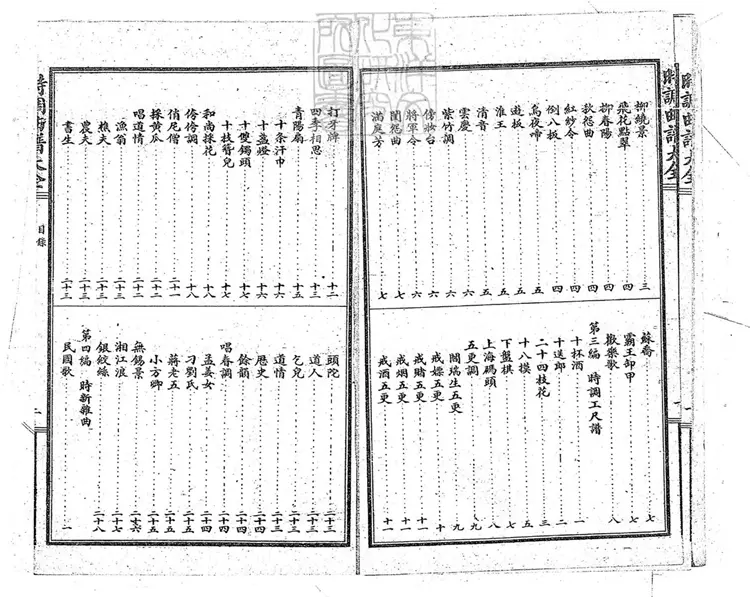 時調曲譜大全
柳繞景 三
飛花點翠 四
柳春陽 四
秋怨曲 四
紅紗令 四
倒八板 四
烏夜啼 五
遊板 五
淮王 五
清音 五
雲慶 六
紫竹調 六
傍妝台 六
將軍令 六
閨怨曲 七
滿庭芳 七
蘇喬 七
霸王卸甲 七
歡樂歌 八
第三編 時調工尺譜
十杯酒 一
十送郎 二
二十四枝花 三
十八摸 五
下盤棋 七
上海碼頭 八
五更調 九
閻瑞生五更 九
戒嫖五更 十
戒賭五更 十一
戒烟五更 十一
戒酒五更 十一
打牙牌 十二
四季相思 十三
青陽扇 十五
十条汗巾 十六
十盞燈 十六
十雙鐲頭 十七
十枝簪兒 十七
和尚採花 十八
俏俏調 十八
俏尼僧 二十一
採黃瓜 二十二
唱道情 二十二
漁翁 二十三
樵夫 二十三
農夫 二十三
書生 二十三
頭陀 二十三
道人 二十三
乞兒 二十三
道情 二十三
歷史 二十四
餘韻 二十四
唱春調 二十四
孟姜女 二十四
刁劉氏 二十五
蔣老五 二十五
小方卿 二十五
無錫景 二十六
湘江浪 二十七
銀絞絲 二十八
第四編 時新雜曲
民國歌 一
時調曲譜大全
目錄